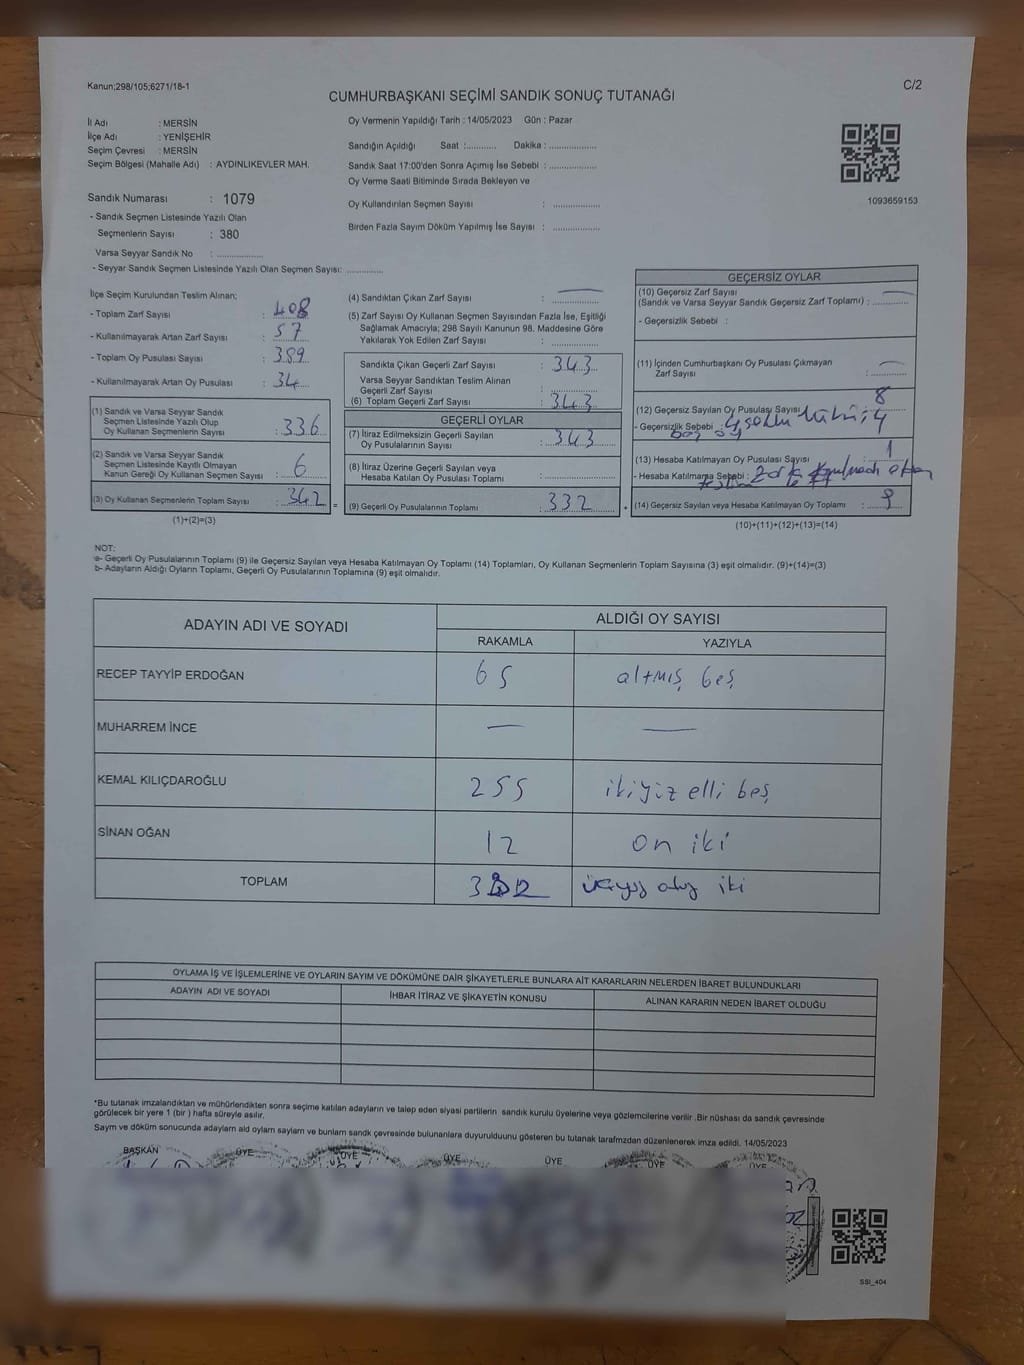 Kanun;298/105;6271/18-1
C/2
CUMHURBAŞKANI SEÇİMİ SANDIK SONUÇ TUTANAĞI
İl Adı : MERSİN
İlçe Adı : YENİŞEHİR
Seçim Çevresi : MERSİN
Seçim Bölgesi (Mahalle Adı) : AYDINLIKEVLER MAH.
Sandık Numarası : 1079
- Sandık Seçmen Listesinde Yazılı Olan
Seçmenlerin Sayısı : 380
Varsa Seyyar Sandık No : ..................
- Seyyar Sandık Seçmen Listesinde Yazılı Olan Seçmen Sayısı: ..............
Oy Vermenin Yapıldığı Tarih : 14/05/2023 Gün : Pazar
Sandığın Açıldığı Saat :........... Dakika : ..................
Sandık Saat 17:00'den Sonra Açımış İse Sebebi : ..................
Oy Verme Saati Bitiminde Sırada Bekleyen ve
Oy Kullandırılan Seçmen Sayısı : ..................
Birden Fazla Sayım Döküm Yapılmış İse Sayısı : ..................
1093659153
İlçe Seçim Kurulundan Teslim Alınan;
- Toplam Zarf Sayısı : 408
- Kullanılmayarak Artan Zarf Sayısı : 57
- Toplam Oy Pusulası Sayısı : 389
- Kullanılmayarak Artan Oy Pusulası : 34
(1) Sandık ve Varsa Seyyar Sandık
Seçmen Listesinde Yazılı Olup
Oy Kullanan Seçmenlerin Sayısı : 336
(2) Sandık ve Varsa Seyyar Sandık
Seçmen Listesinde Kayıtlı Olmayan
Kanun Gereği Oy Kullanan Seçmen Sayısı : 6
(3) Oy Kullanan Seçmenlerin Toplam Sayısı : 342 =
(1)+(2)=(3)
(4) Sandıktan Çıkan Zarf Sayısı : —
(5) Zarf Sayısı Oy Kullanan Seçmen Sayısından Fazla İse, Eşitliği
Sağlamak Amacıyla; 298 Sayılı Kanunun 98. Maddesine Göre
Yakılarak Yok Edilen Zarf Sayısı : ..................
Sandıkta Çıkan Geçerli Zarf Sayısı : 343
Varsa Seyyar Sandıktan Teslim Alınan
Geçerli Zarf Sayısı : ..................
(6) Toplam Geçerli Zarf Sayısı : 343
GEÇERLİ OYLAR
(7) İtiraz Edilmeksizin Geçerli Sayılan
Oy Pusulalarının Sayısı : 343
(8) İtiraz Üzerine Geçerli Sayılan veya
Hesaba Katılan Oy Pusulası Toplamı : ..................
(9) Geçerli Oy Pusulalarının Toplamı : 332
GEÇERSİZ OYLAR
(10) Geçersiz Zarf Sayısı —
(Sandık ve Varsa Seyyar Sandık Geçersiz Zarf Toplamı) : ............
- Geçersizlik Sebebi :
(11) İçinden Cumhurbaşkanı Oy Pusulası Çıkmayan
Zarf Sayısı : —
(12) Geçersiz Sayılan Oy Pusulası Sayısı : 8
- Geçersizlik Sebebi :
boş oy
(13) Hesaba Katılmayan Oy Pusulası Sayısı : 1
- Hesaba Katılmama Sebebi :
(14) Geçersiz Sayılan veya Hesaba Katılmayan Oy Toplamı : 9
(10)+(11)+(12)+(13)=(14)
NOT:
a- Geçerli Oy Pusulalarının Toplamı (9) ile Geçersiz Sayılan veya Hesaba Katılmayan Oy Toplamı (14) Toplamları, Oy Kullanan Seçmenlerin Toplam Sayısına (3) eşit olmalıdır. (9)+(14)=(3)
b- Adayların Aldığı Oyların Toplamı, Geçerli Oy Pusulalarının Toplamına (9) eşit olmalıdır.
ADAYIN ADI VE SOYADI
ALDIĞI OY SAYISI
RAKAMLA YAZIYLA
RECEP TAYYİP ERDOĞAN 65 altmış beş
MUHARREM İNCE — —
KEMAL KILIÇDAROĞLU 255 ikiyüz elli beş
SİNAN OĞAN 12 on iki
TOPLAM iki
OYLAMA İŞ VE İŞLEMLERİNE VE OYLARIN SAYIM VE DÖKÜMÜNE DAİR ŞİKAYETLERLE BUNLARA AİT KARARLARIN NELERDEN İBARET BULUNDUKLARI
ADAYIN ADI VE SOYADI İHBAR İTİRAZ VE ŞİKAYETİN KONUSU ALINAN KARARIN NEDEN İBARET OLDUĞU
*Bu tutanak imzalandıktan ve mühürlendikten sonra seçime katılan adayların ve talep eden siyasi partilerin sandık kurulu üyelerine veya gözlemcilerine verilir .Bir nüshası da sandık çevresinde
görülecek bir yere 1 (bir ) hafta süreyle asılır.
Sayım ve döküm sonucunda adayların ald oyların sayıları ve bunların sandk çevresinde bulunanlara duyurulduunu gösteren bu tutanak tarafmzdan düzenlenerek imza edildi. 14/05/2023
BAŞKAN ÜYE ÜYE ÜYE ÜYE ÜYE ÜYE
SSI_404